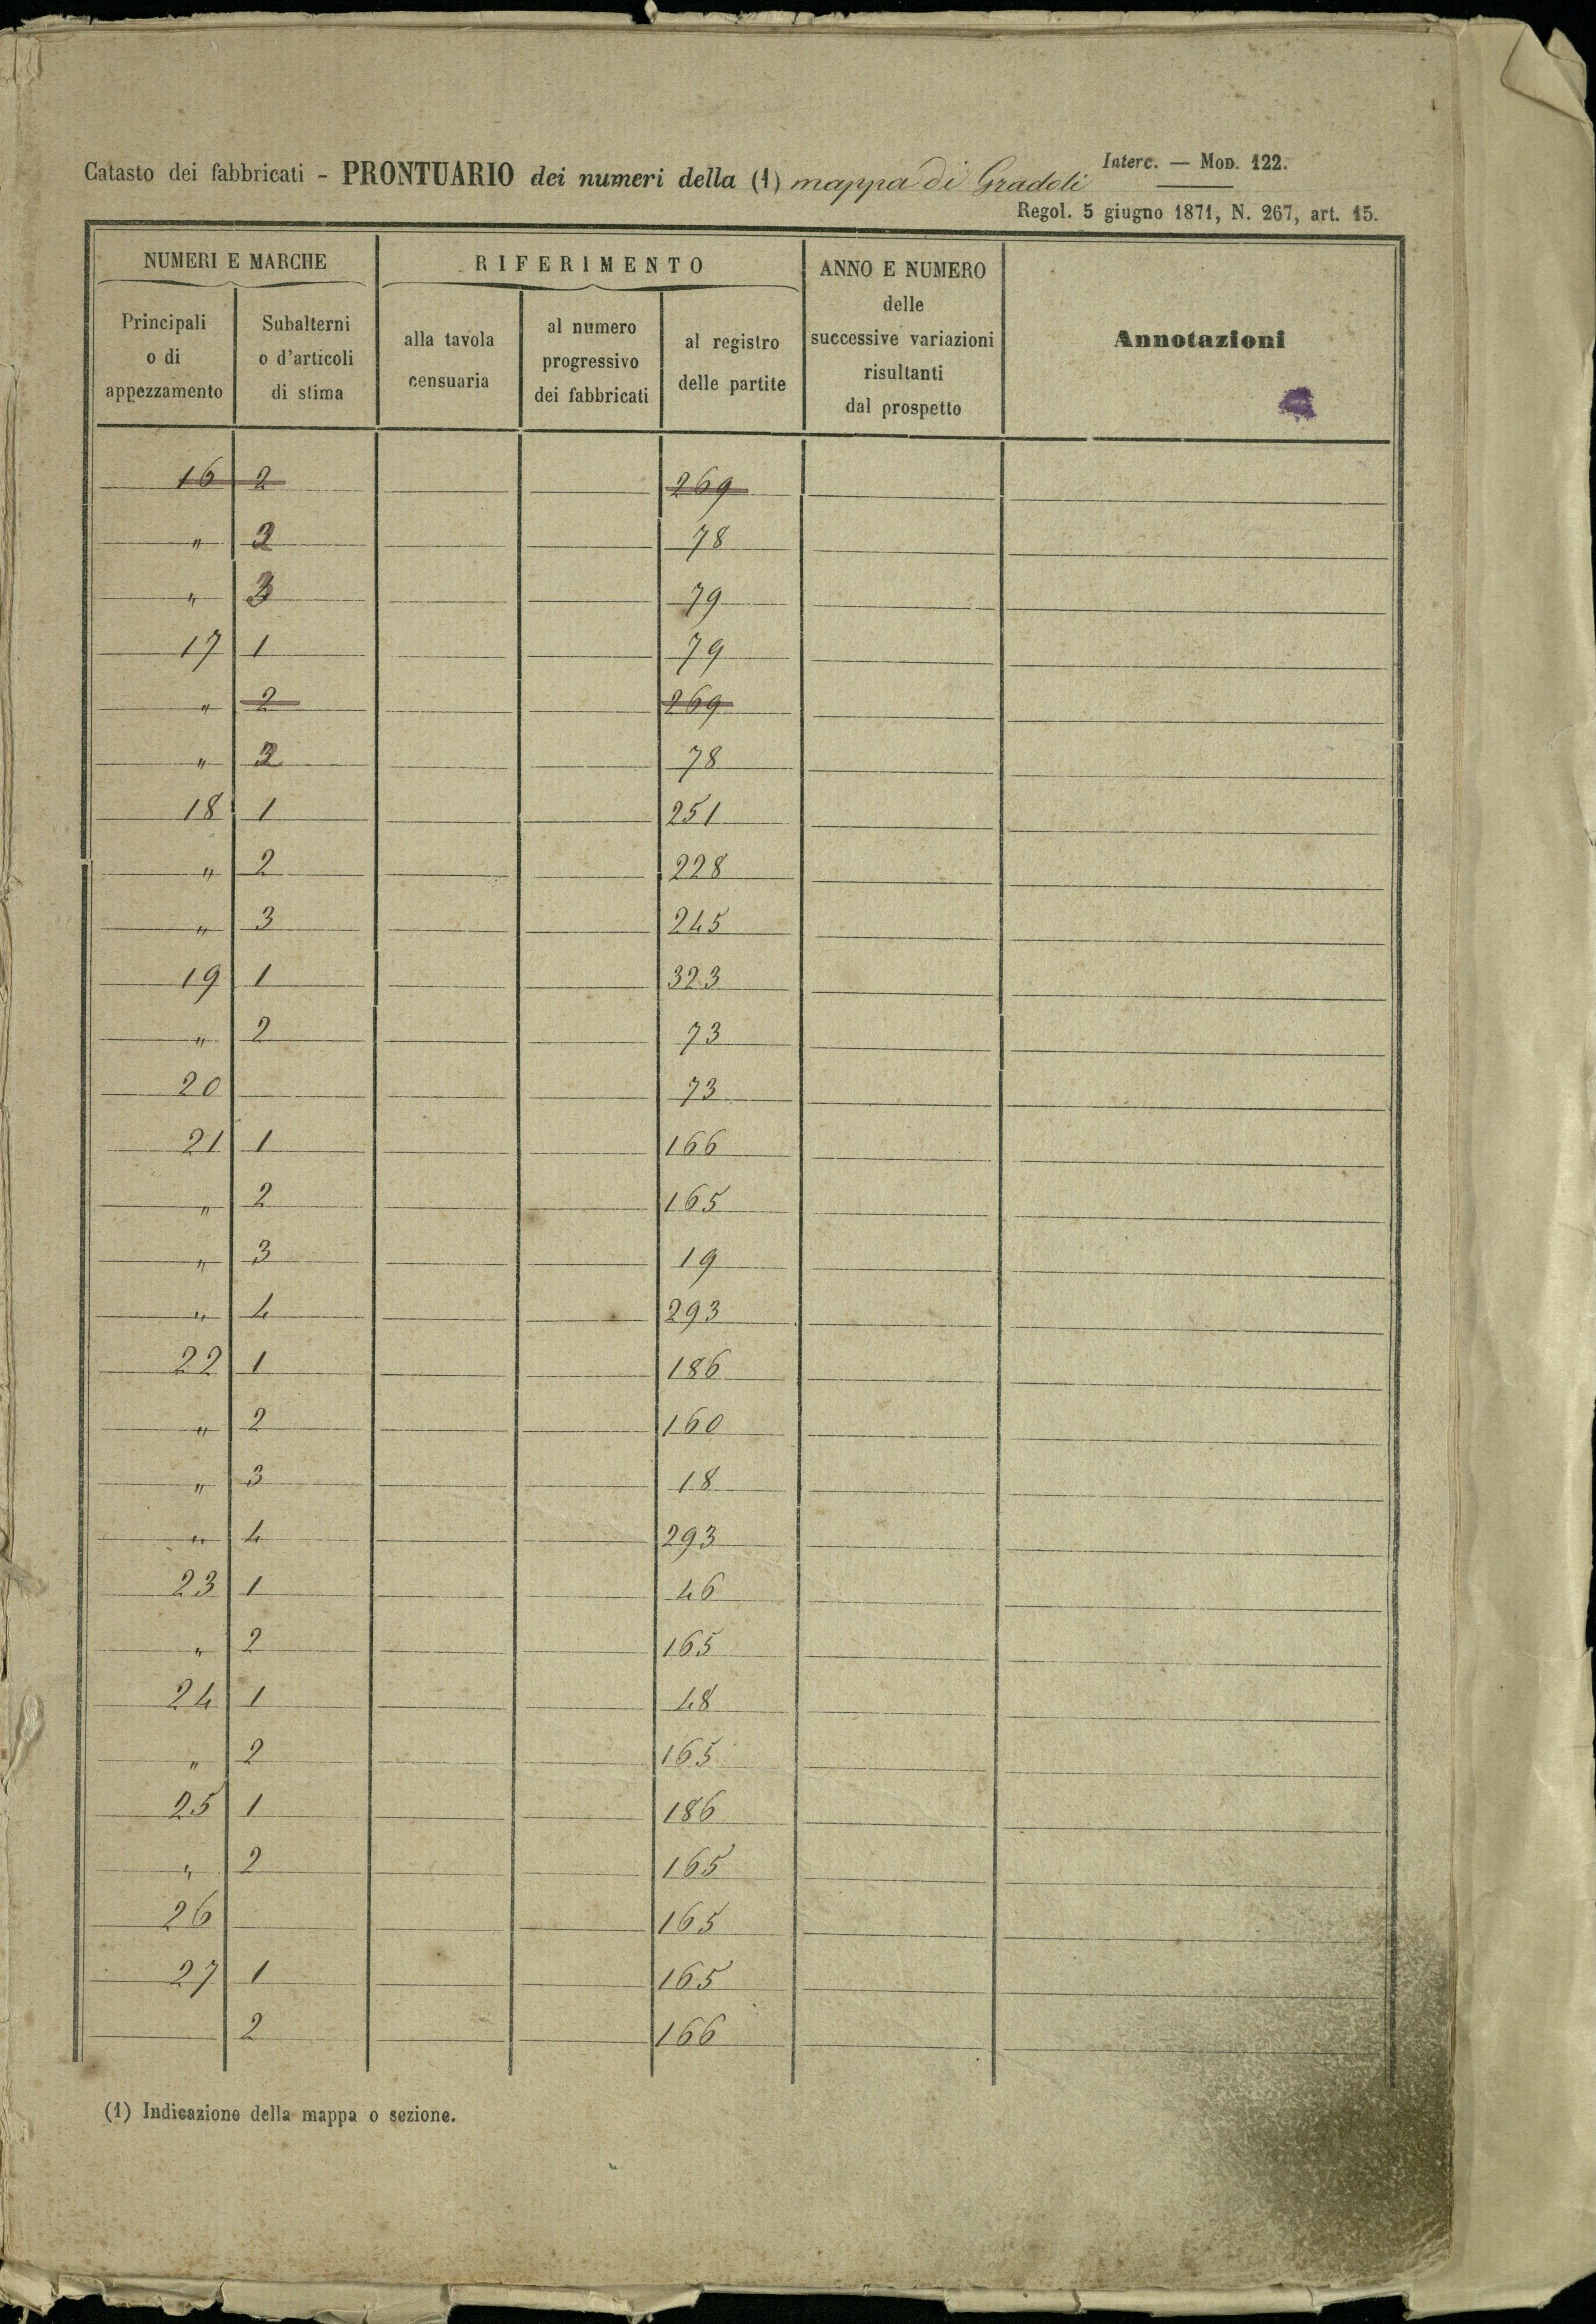 Interc. — Mod. 122.
Catasto dei fabbricati - PRONTUARIO dei numeri della (1) mappa di Gradoli
Regol. 5 giugno 1871, N. 267, art. 15.
NUMERI E MARCHE RIFERIMENTO ANNO E NUMERO delle successive variazioni risultanti dal prospetto Annotazioni
Principali o di appezzamento Subalterni o d'articoli di stima alla tavola censuaria al numero progressivo dei fabbricati al registro delle partite
16 2 269
" 2 78
" 3 79
17 1 79
" 2 269
" 2 78
18 1 251
" 2 228
" 3 245
19 1 323
" 2 73
20 73
21 1 166
" 2 165
" 3 19
" 4 293
22 1 186
" 2 160
" 3 18
" 4 293
23 1 46
" 2 165
24 1 48
" 2 165
25 1 186
" 2 165
26 165
27 1 165
2 166
(1) Indicazione della mappa o sezione.